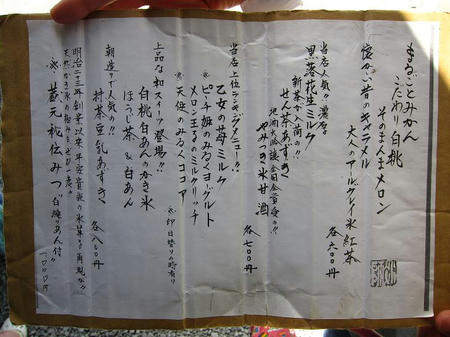 まるごとみかん
こだわり白桃
そのまんまメロン
懐かし昔のキャラメル
大人のアールグレイ氷紅茶
各六〇〇円
当店人気!!濃厚
黒落花生ミルク
新茶で入荷の!!
せん茶あずき
やみつき氷甘酒
各七〇〇円
当店上位ランキングメニュー!!
乙女の苺ミルク
ピーチ姫のみるくヨーグルト
メロン王子のミルクリッチ
※天使のみるくココア
※印日替りの時有り
上品な和スイーツ登場!!
白桃白あんのかき氷
ほうじ茶&白あん
朝造りで人気の!!
抹茶豆乳あずき
各八〇〇円
天然かき氷の極みをぜひ一度
※蔵元秘伝みつ"白練りあん付"
一〇〇〇円